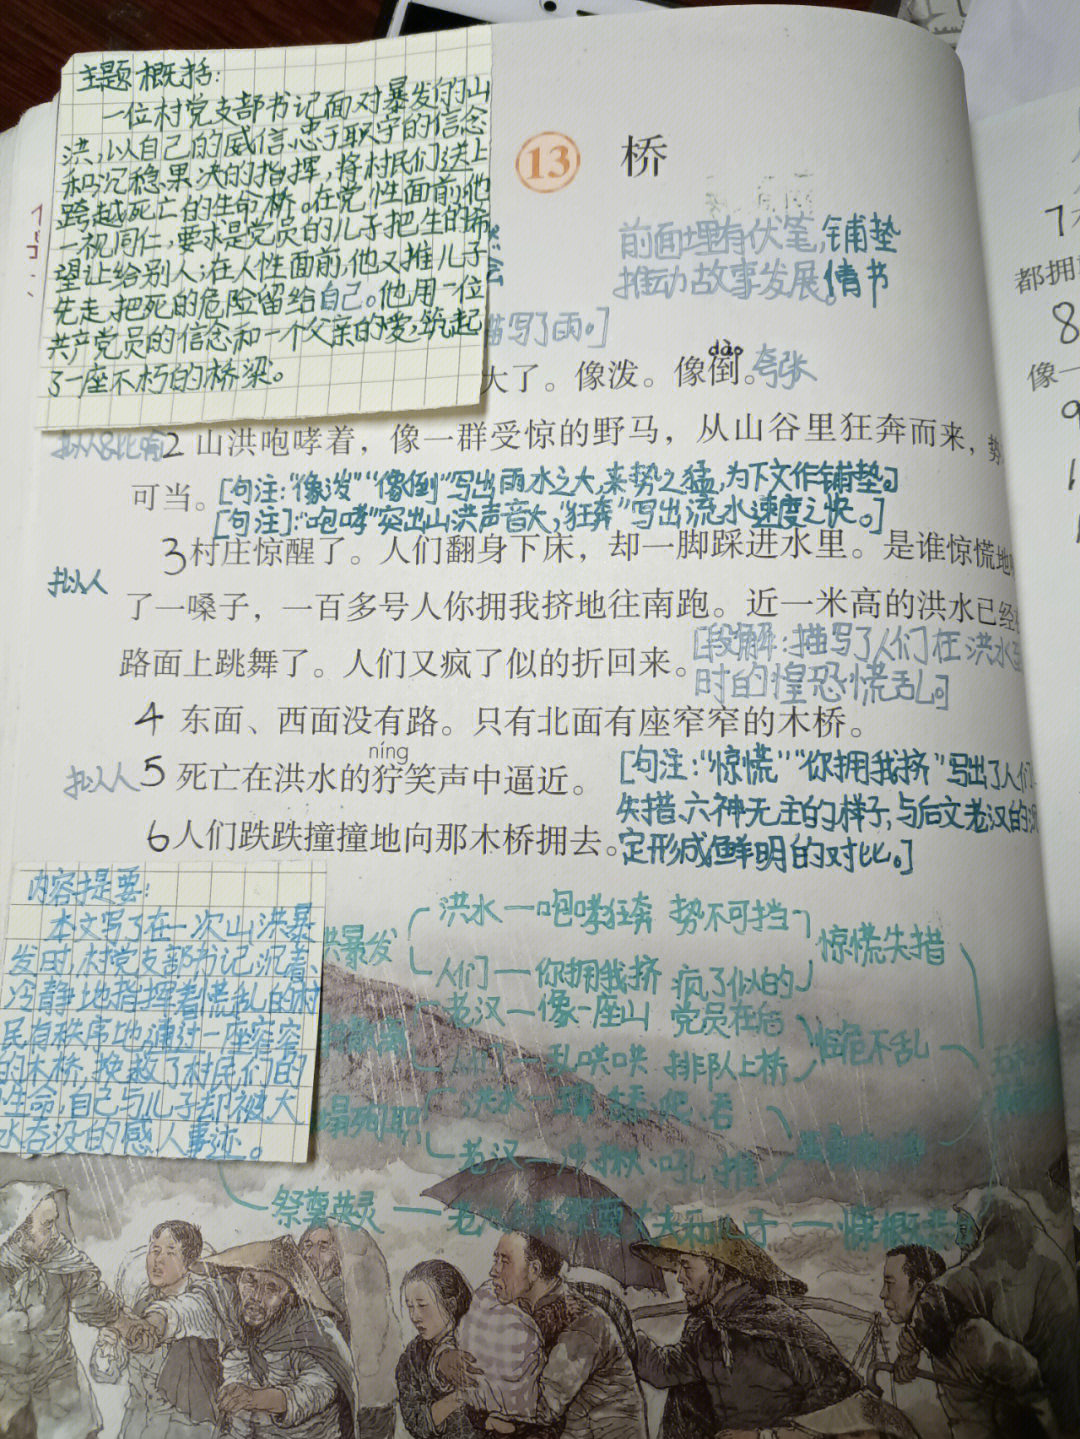 主题概括:
一位村党支部书记面对暴发的山
洪,以自己的威信,忠于职守的信念
和沉稳果决的指挥,将村民们送上
跨越死亡的生命桥。在党性面前,他
一视同仁,要求是党员的儿子把生的希
望让给别人;在人性面前,他又推儿子
先走,把死的危险留给自己。他用一位
共产党员的信念和一个父亲的爱,筑起
了一座不朽的桥梁。
13 桥
前面埋有伏笔,铺垫
推动故事发展。情书
描写了雨。]
dào
大了。像泼。像倒。夸张
拟人&比喻
2 山洪咆哮着，像一群受惊的野马，从山谷里狂奔而来，势
可当。[句注:“像泼”“像倒”写出雨水之大,来势之猛,为下文作铺垫。]
[句注]:“咆哮”突出山洪声音大,“狂奔”写出流水速度之快。]
3村庄惊醒了。人们翻身下床，却一脚踩进水里。是谁惊慌地
拟人
了一嗓子，一百多号人你拥我挤地往南跑。近一米高的洪水已经
路面上跳舞了。人们又疯了似的折回来。[段解:描写了人们在洪水至
时的惶恐慌乱。]
4 东面、西面没有路。只有北面有座窄窄的木桥。
níng
拟人
5 死亡在洪水的狞笑声中逼近。
[句注:“惊慌”“你拥我挤”写出了人们
失措、六神无主的样子,与后文老汉的
6人们跌跌撞撞地向那木桥拥去。定形成鲜明的对比。]
内容提要:
本文写了在一次山洪暴
发时,村党支部书记沉着、
冷静地指挥着慌乱的村
民有秩序地通过一座窄窄
的木桥,挽救了村民们的
生命,自己与儿子却被大
水吞没的感人事迹。
洪水—咆哮狂奔 势不可挡
暴发
惊慌失措
人们—你拥我挤 疯了似的
老汉—像一座山 党员在后
临危不乱
人们—乱哄哄 排队上桥
洪水
殉职
老汉
祭奠英灵
7
都拥
8
像一